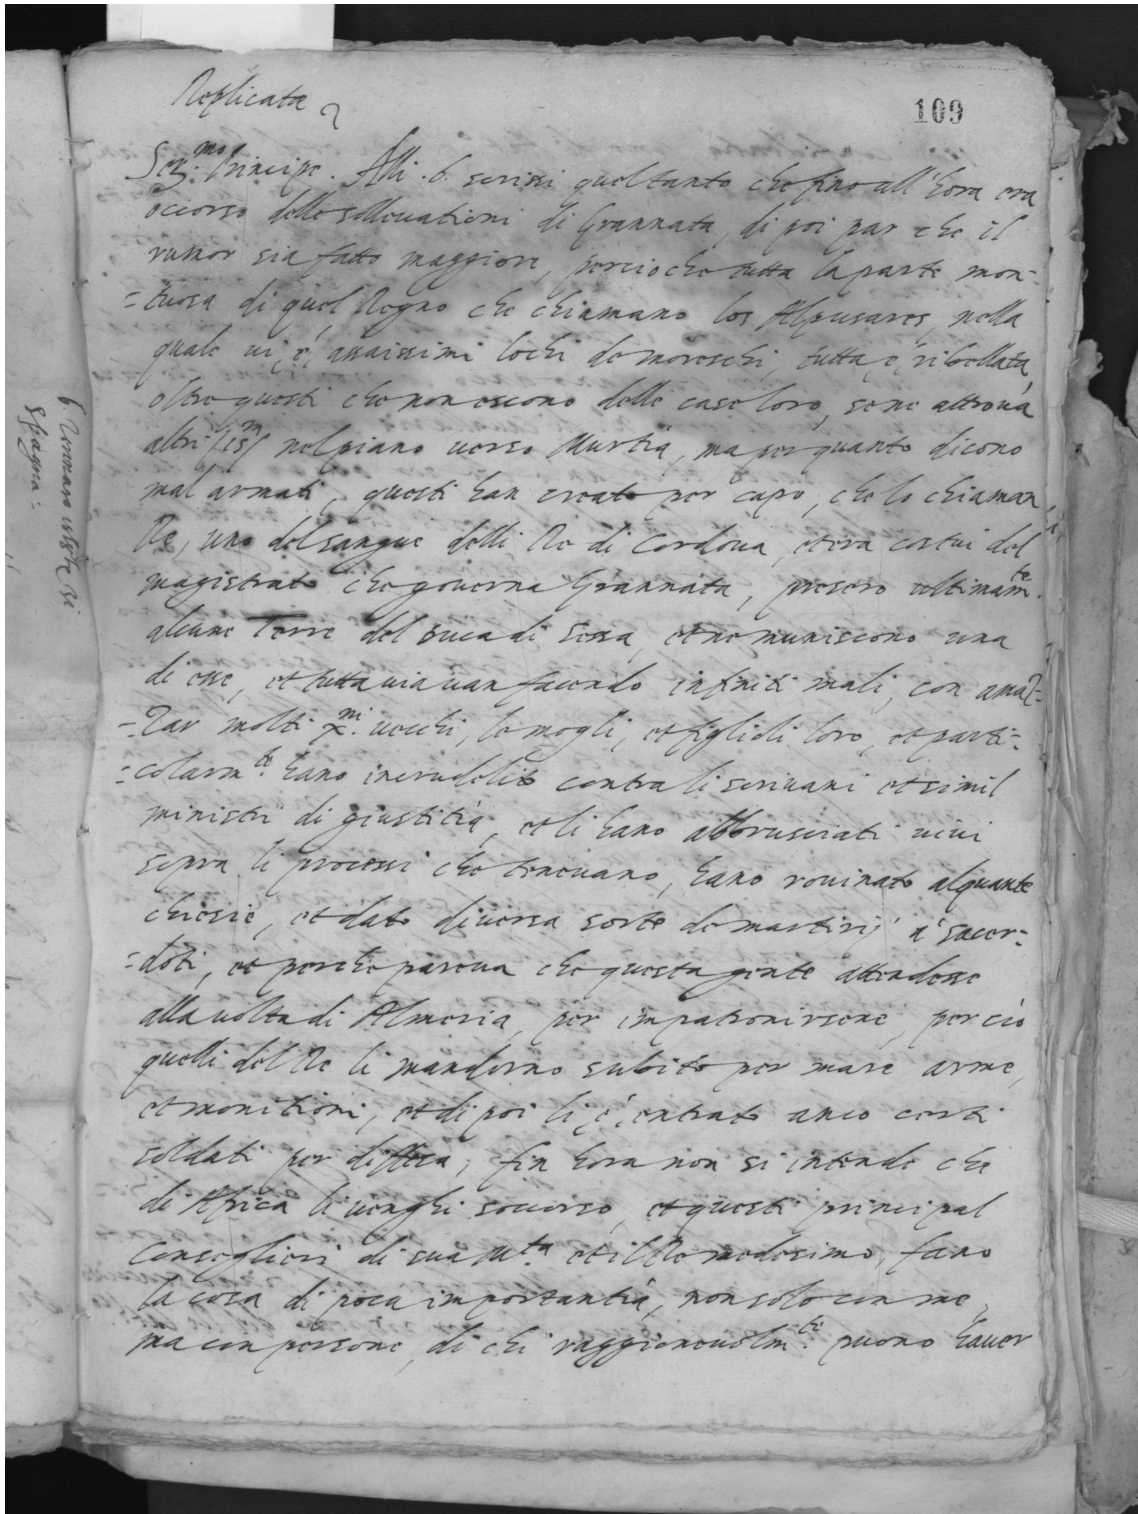 Replicata
109
Ser.mo Principe. Alli .6. scrissi quel tanto che fino all'hora era
occorso delle sollevationi di Grannata, di poi par che il
rumor sia fatto maggiore, percioche tutta la parte mon-
-tuosa di quel Regno che chiamano los Alpusares, nella
quale vi è assaissimi lochi de moreschi, tutta è ribellata,
oltre questi che non escono delle case loro, se ne attrova
altri 15/m nel piano verso Murtia, ma per quanto dicono
mal armati, questi han creato per capo, che lo chiaman
Re, uno del sangue delli Re di Cordova, et era costui del
magistrato che governa Grannata, presero ultimam.te
alcune Terre del Duca di Sessa, et ne muniscono una
di esse, et tuttavia van facendo infiniti mali, con amaz-
-zar molti x.ni vecchi, le mogli, et figlioli loro, et parti-
-colarm.te hano incrudelito contra li scrivani et simil
ministri di giustitia, et li hano abbrusciati vivi
sopra li processi che tenevano, hano rovinato alquante
chiesie, et dato diversa sorte de martirij a' sacer-
-doti, et perche pareva che questa gente attendesse
alla volta di Almeria, per impatronirsene, per ciò
quelli del Re li mandorno subito per mare arme,
et monitioni, et di poi li è entrato anco certi
soldati per diffesa, fin hora non si intende che
de Africa li venghi soccorso, et questi principal
Conseglieri di sua M.ta et il Re medesimo, fano
la cosa di poca importantia, non solo con me,
ma con persone, di chi raggionevolm.te puono haver
Spagna.